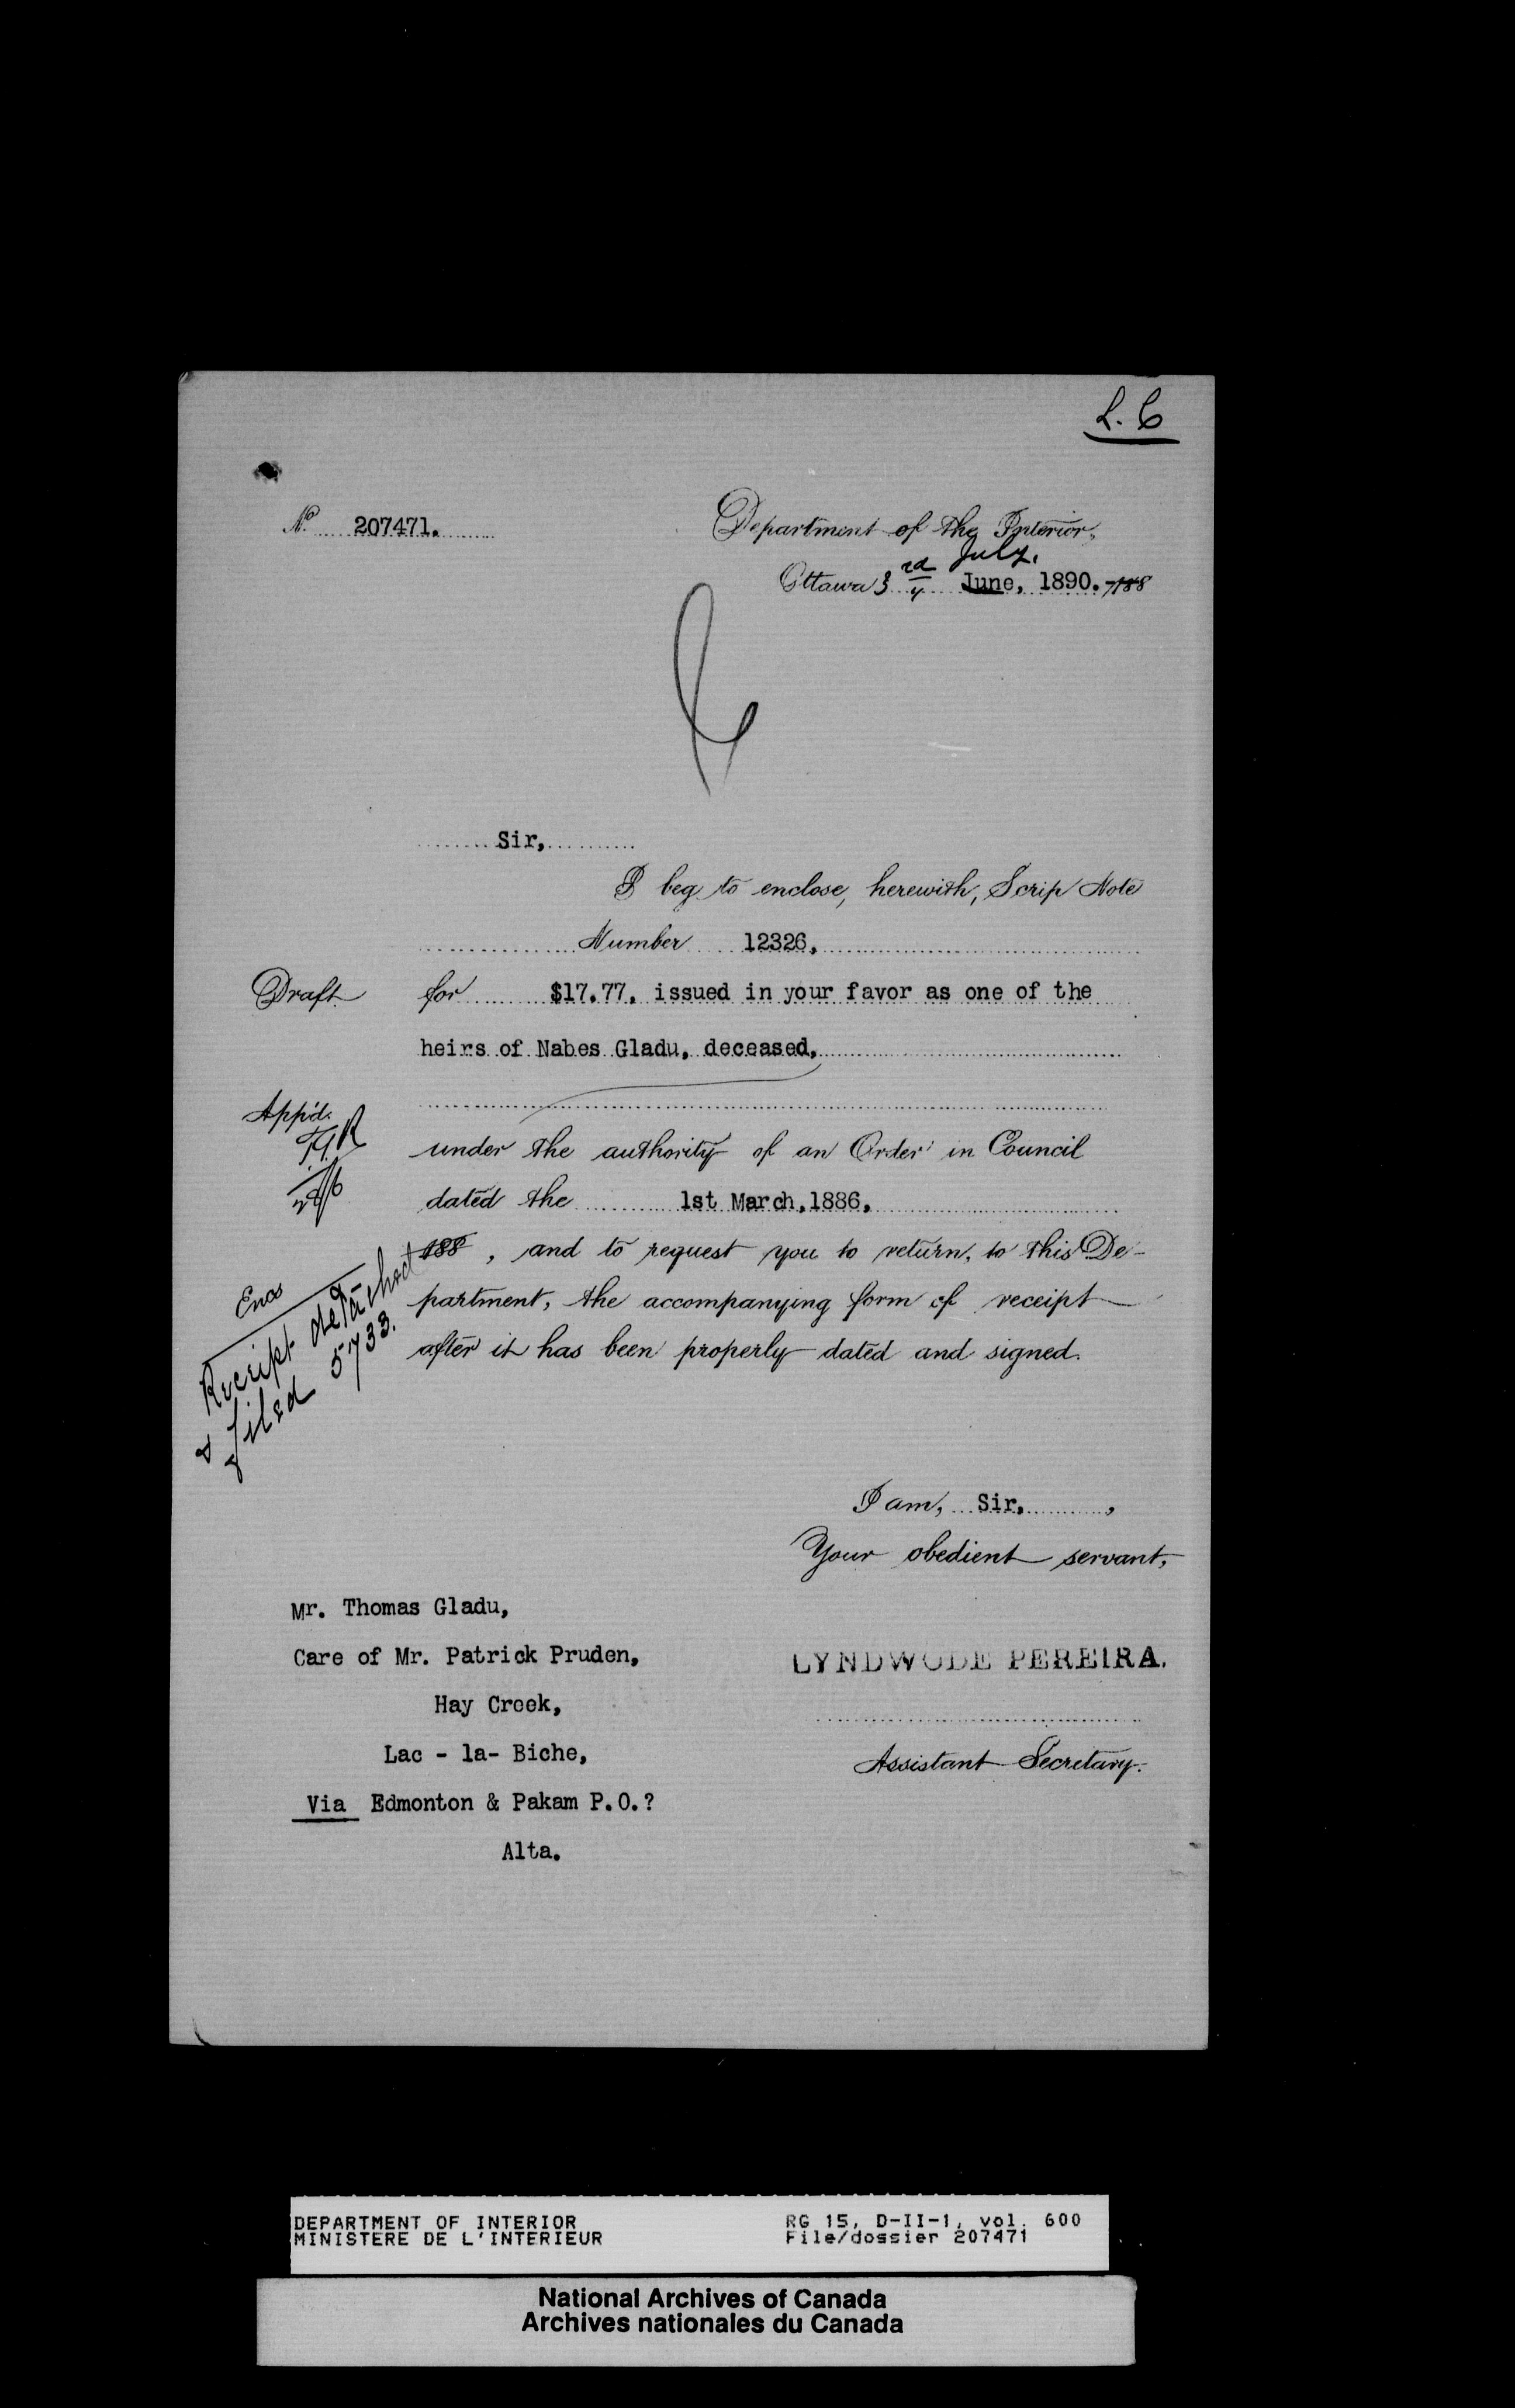 L. C
No. 207471.
Department of the Interior,
July.
Ottawa 3rd June, 1890. 188
Sir,
I beg to enclose, herewith, Scrip Note
Number 12326,
Draft for $17.77, issued in your favor as one of the
heirs of Nabes Gladu, deceased,
App'd.
under the authority of an Order in Council
dated the 1st March, 1886,
188 , and to request you to return, to this De-
partment, the accompanying form of receipt
after it has been properly dated and signed.
Encs
Receipt detached
& filed 5/33.
I am, Sir, ,
Your obedient servant,
Mr. Thomas Gladu,
Care of Mr. Patrick Pruden,
Hay Creek,
Lac - la- Biche,
Via Edmonton & Pakam P.O.?
Alta.
LYNDWODE PEREIRA.
Assistant Secretary.
DEPARTMENT OF INTERIOR
MINISTERE DE L'INTERIEUR
RG 15, D-II-1, vol. 600
File/dossier 207471
National Archives of Canada
Archives nationales du Canada